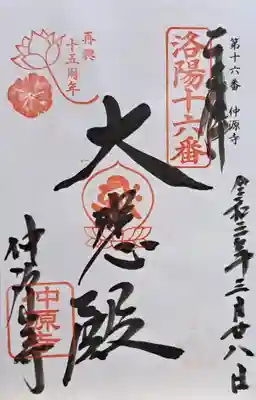 第十六番 仲源寺
奉拝
洛陽十六番
令和二年三月廿八日
再興
十五周年
大悲殿
仲源寺
中原寺